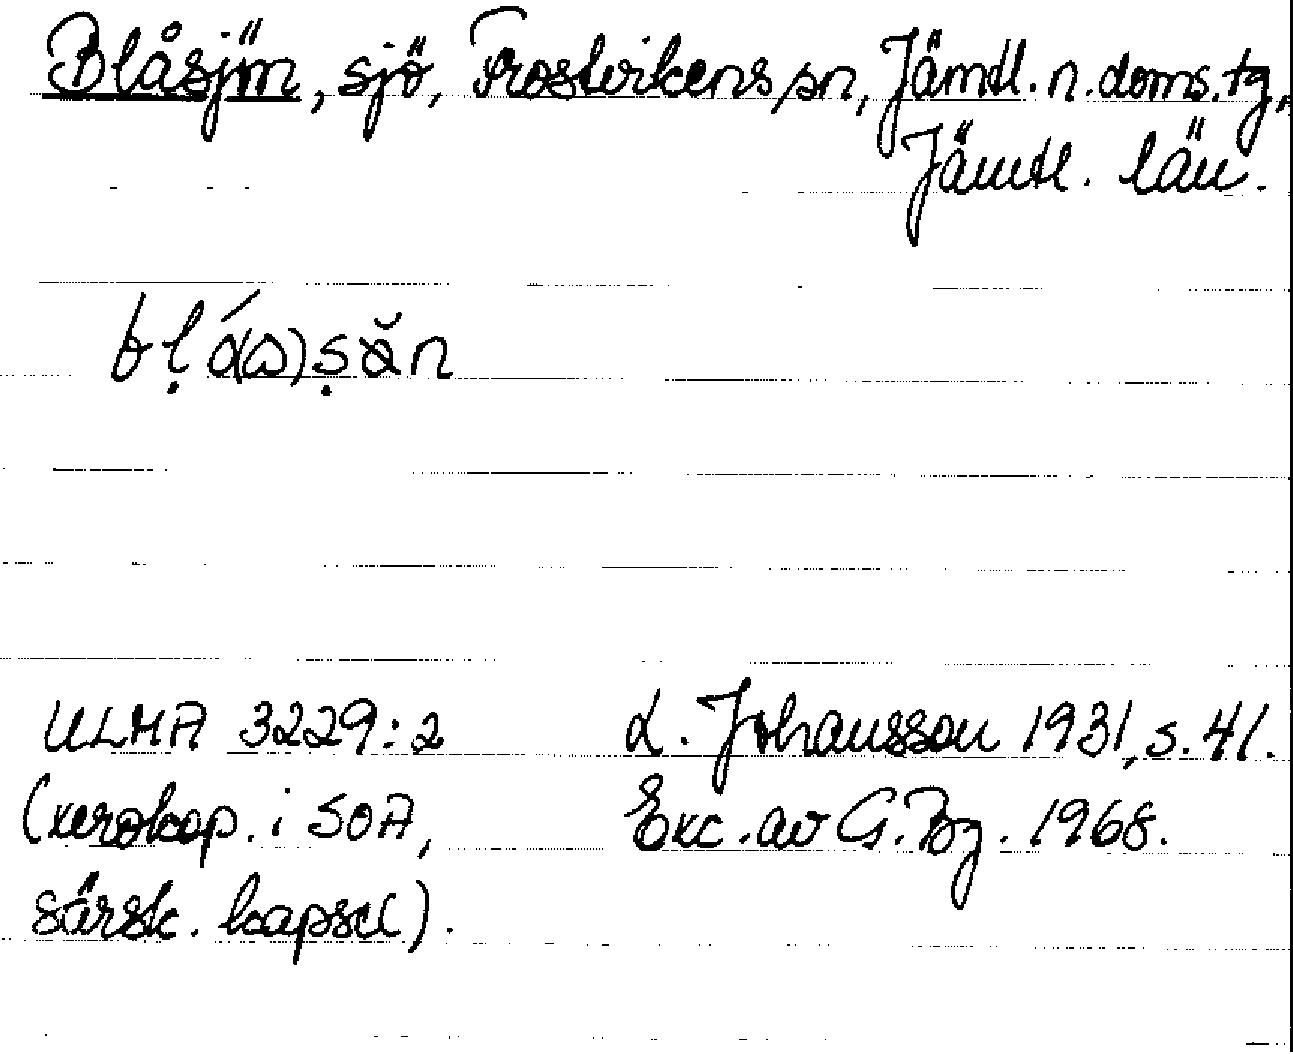 Blåsjön, sjö, Frostvikens sn, Jämtl. n. doms. tg,
Jämtl. län.
bḷá(ɷ)ṣän
ULMA 3229:2
(xerokop. i SOA,
särsk. kapsel).
L. Johansson 1931, s. 41.
Exc. av G. Bg. 1968.